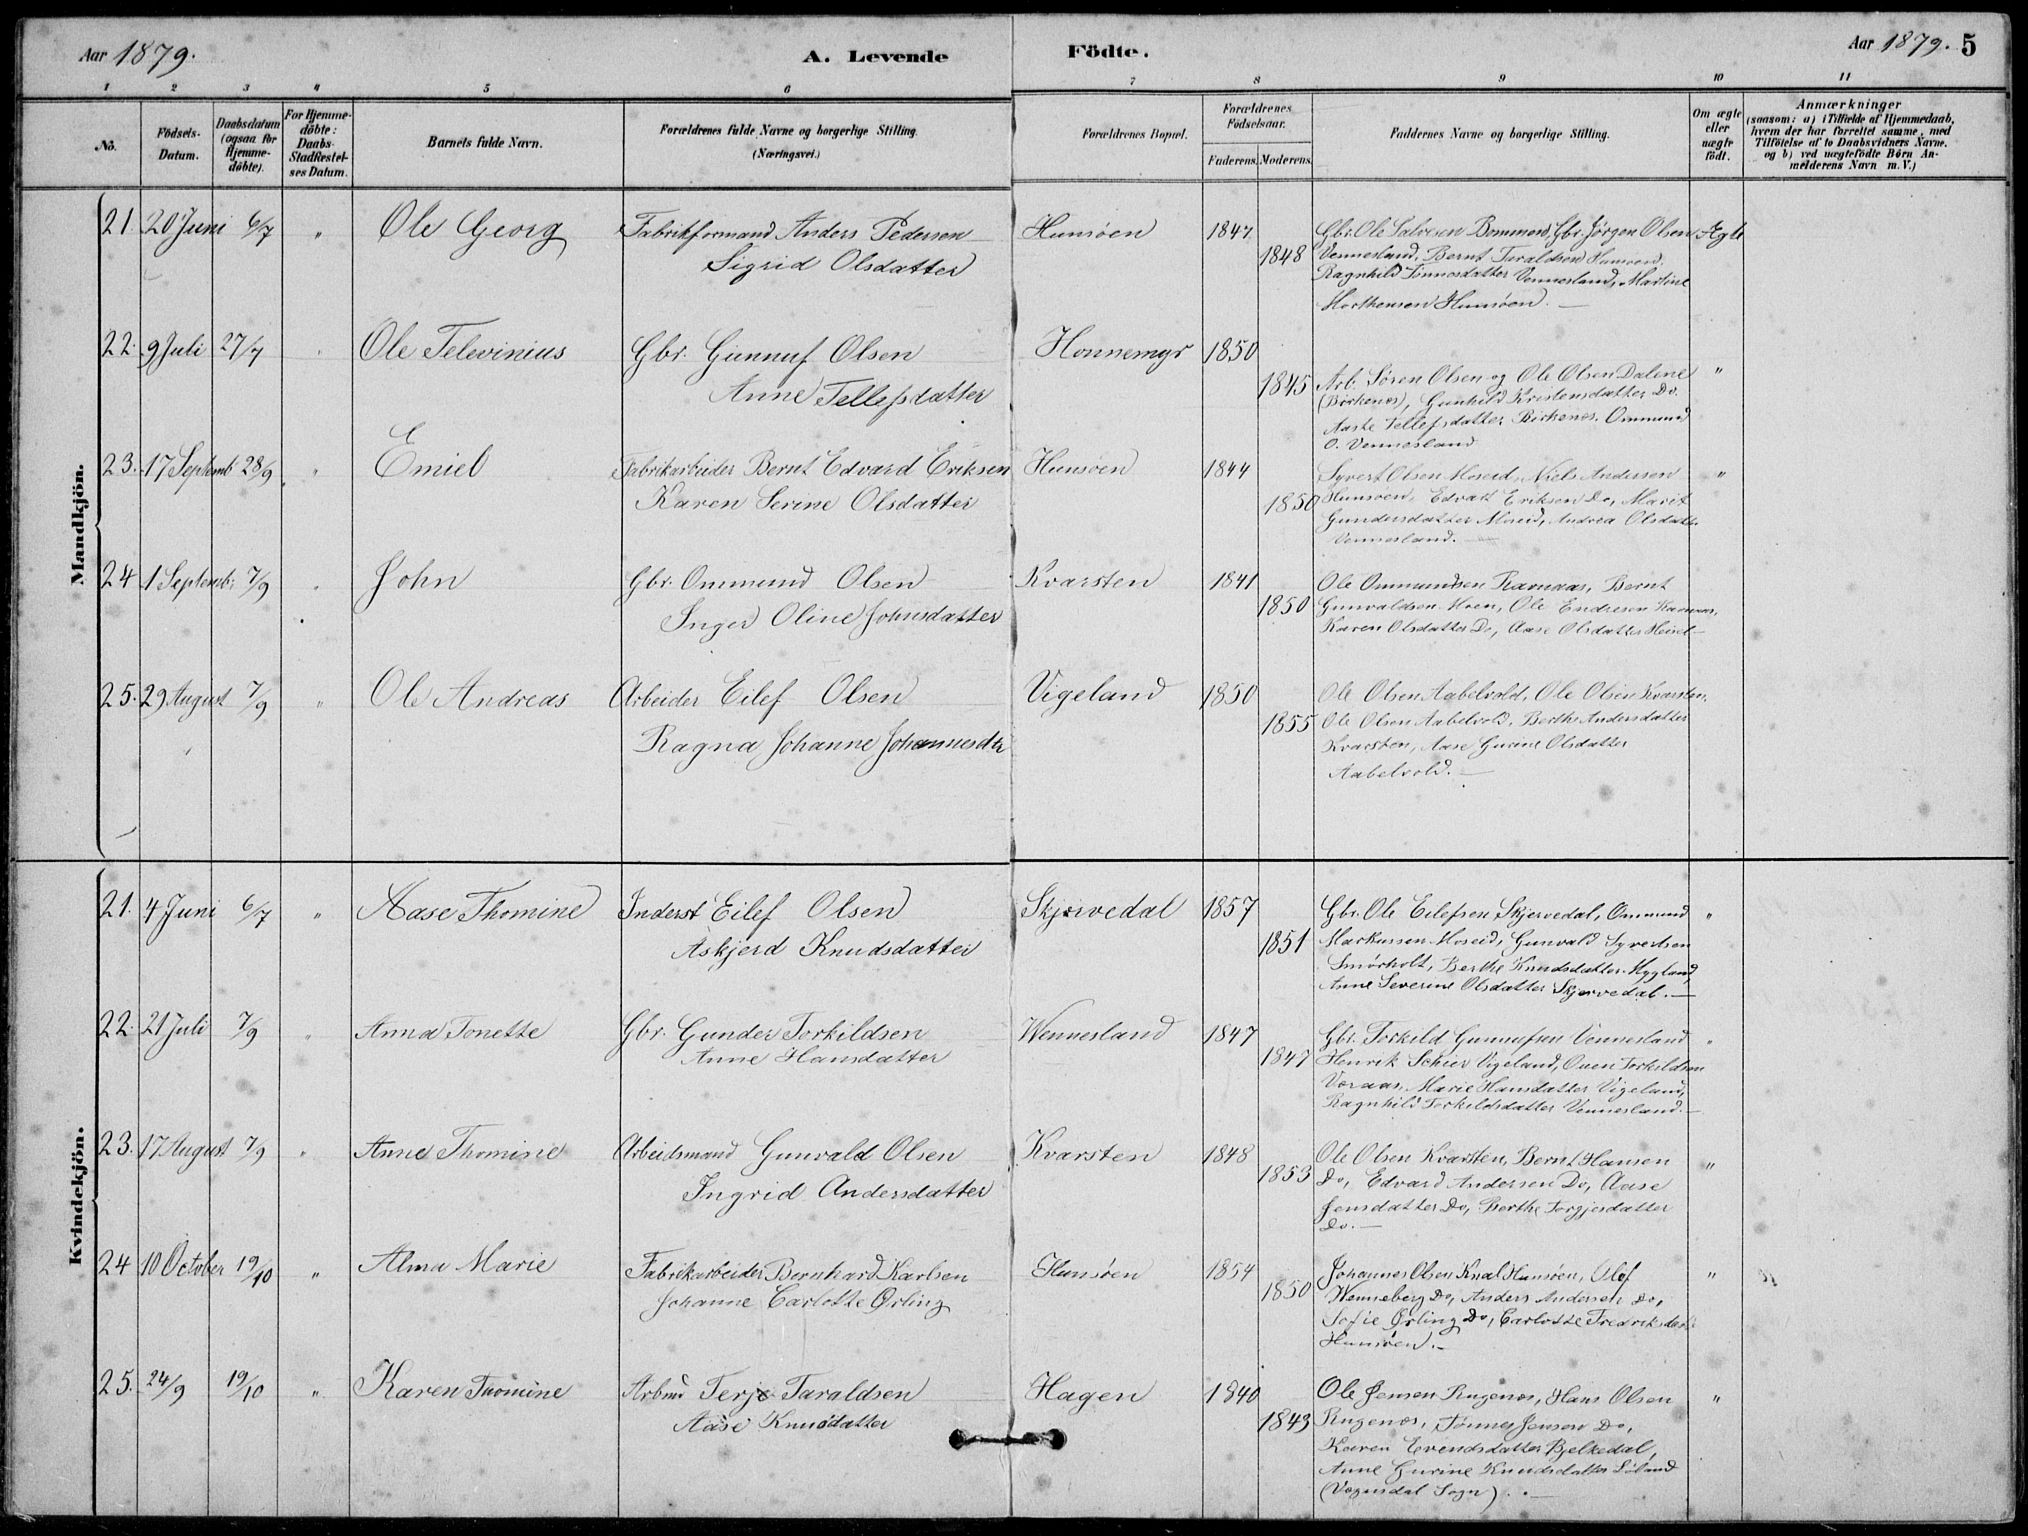 Aar 1879. A. Levende Födte. Aar 1879. 5
1 2 3 4 5 6 7 8 9 10 11
No.
Födsels-Datum.
Daabsdatum (ogsaa for Hjemme-döbte).
For Hjemme-döbte: Daabs-Stadfæstel-ses Datum.
Barnets fulde Navn.
Forældrenes fulde Navne og borgerlige Stilling.
(Næringsvei.)
Forældrenes Bopæl.
Forældrenes Födselsaar.
Faderens. Moderens.
Faddernes Navne og borgerlige Stilling.
Om ægte eller uægte födt.
Anmærkninger
(saasom: a) i Tilfælde af Hjemmedaab,
hvem der har forrettet samme, med
Tilföielse af to Daabsvidners Navne,
og b) ved uægtefödte Börn An-
melderens Navn m.V.)
Mandkjön.
21. 20 Juni 6/7 " Ole Georg Fabrikformand Anders Pedersen Hunsöen 1847 Gbr. Ole Salvesen Bommen, Gbr. Jörgen Olsen Ægte
Sigrid Olsdatter 1848 Vennesland, Bernt Taraldsen Hunsöen,
Ragnhild Tönnesdatter Vennesland, Martine
Morthensen Hunsöen.
22. 9 Juli 27/7 " Ole Televinius Gbr. Gunnuf Olsen Honnemyr 1850
Anne Tellefsdatter 1845 Arb. Sören Olsen og Ole Olsen Dalene "
(Birkenes), Gunhild Kristensdatter Do.
Aaste Tellefsdatter Birkenes. Ommund
O. Vennesland
23. 17 Septemb 28/9 " Emiel Fabrikarbeider Bernt Edvard Eriksen Hunsöen 1844 Syvert Olsen Moseid, Niels Andersen "
Karen Serine Olsdatter 1850 Hunsöen, Edvart Eriksen Do, Marit
Gundersdatter Moseid, Andrea Olsdatter
Vennesland.
24 1 Septemb: 7/9 " John Gbr. Ommund Olsen Kvarsten 1841 Ole Ommundsen Ravnaas, Bernt
Inger Oline Johnsdatter 1850 Gunvaldsen Moen, Ole Endresen Ravnaas,
Karen Olsdatter Do, Aase Olsdatter Heisel
25. 29 August 7/9 " Ole Andreas Arbeider Eilef Olsen Vigeland 1850 Ole Olsen Aabelvold, Ole Olsen Kvarsten,
Ragna Johanne Johannesdtr 1855 Ole Olsen Aabelvold, Berthe Andersdatter
Kvarsten, Aase Gurine Olsdatter
Aabelvold.
Kvindekjön.
21. 4 Juni 6/7 " Aase Thomine Inderst Eilef Olsen Skjervedal 1857 Gbr. Ole Eilefsen Skjervedal, Ommund "
Askjerd Knudsdatter 1851 Markussen Moseid, Gunvald Syvertsen
Smörholt, Berthe Knudsdatter Mygland,
Anne Severine Olsdatter Skjervedal.
22. 21 Juli 7/9 " Anna Tonette Gbr. Gunder Torkildsen Wennesland 1847 Gbr. Torkild Gunnufsen Vennesland "
Anne Hansdatter 1847 Henrik Schier Vigeland, Ouen Torkildsen
Voraas, Marie Hansdatter Vigeland,
Ragnhild Torkildsdatter Vennesland.
23. 17 August 7/9 " Anne Thomine Arbeidsmand Gunvald Olsen Kvarsten 1848 Ole Olsen Kvarsten, Bernt Hansen "
Ingrid Andersdatter 1853 Do, Edvard Andersen Do, Aase
Jensdatter Do, Berthe Torgjesdatter
Do.
24 10 October 19/10 " Alma Marie Fabrikarbeider Bernhard Karlsen Hunsöen 1854 Johannes Olsen Hunsöen, Olof "
Johanne Carlotte Ørling 1850 Wenneberg Do, Anders Andersen Do,
Sofie Ørling Do, Carlotte Fredriksdatter
Hunsöen.
25. 24/9 19/10 " Karen Thomine Arbmd Terje Taraldsen Hagen 1840 Ole Jensen Rugenes, Hans Olsen "
Aase Knudsdatter 1843 Rugenes, Tönnes Jensen Do,
Karen Evendsdatter Bjelkedal,
Anne Gurine Knudsdatter Löland
(Vegusdal Sogn).